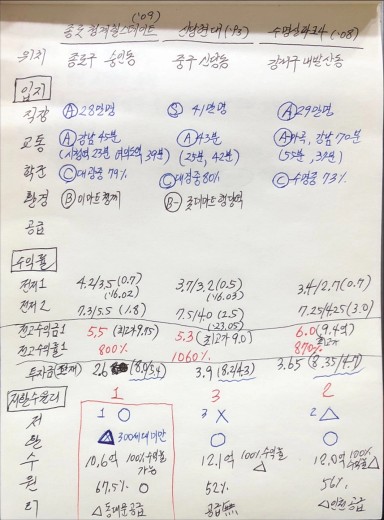 ('09)
종로 청계힐스테이트 신당현대 ('93) 수명산파크4 ('08)
위치 종로구 숭인동 중구 신당동 강서구 내발산동
입지
직장 Ⓐ 28만명 Ⓢ 41만명 Ⓐ 29만명
교통 Ⓐ 강남 45분 Ⓐ 43분 Ⓐ 마곡, 강남 70분
(시청역 23분 여의도역 39분) (25분, 42분) (55분, 32분)
학군 Ⓒ 대광중 79% Ⓒ 대경중 80% Ⓒ 수명중 73%
환경 Ⓑ 이마트 Ⓑ- 롯데마트
공급
수익률
전저1 4.2/3.5 (0.7) 3.7/3.2 (0.5) 3.4/2.7 (0.7)
('16.02) ('16.03)
전저2 7.3/5.5 (1.8) 7.5/4.0 (2.5) 7.25/4.25 (3.0)
('23.05)
전고수익금1 5.5 (최고가 9.75) 5.3 (최고가 9.0) 6.0 (9.4억)
최고가
전고수익률1 800% 1060% 870%
투자금(현재) 2.6 (8.0/5.4) 3.9 (8.2/4.3) 3.65 (8.35/4.7)
저환수원리 1 3 2
저 1 ○ 3 X 2 △
환 △ 300세대 미만 ○ ○
수 10.6억 100% 수익률 가능 12.1억 100% 수익률 △ 12.0억 100% 수익률 △
원 67.5% ○ 52% 56%
리 △ 동대문 공급 공급 無 △ 인천 공급